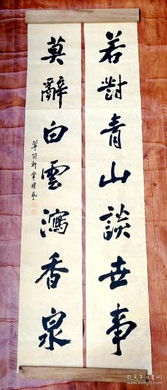 若對青山談世事
莫辭白雲瀉香泉